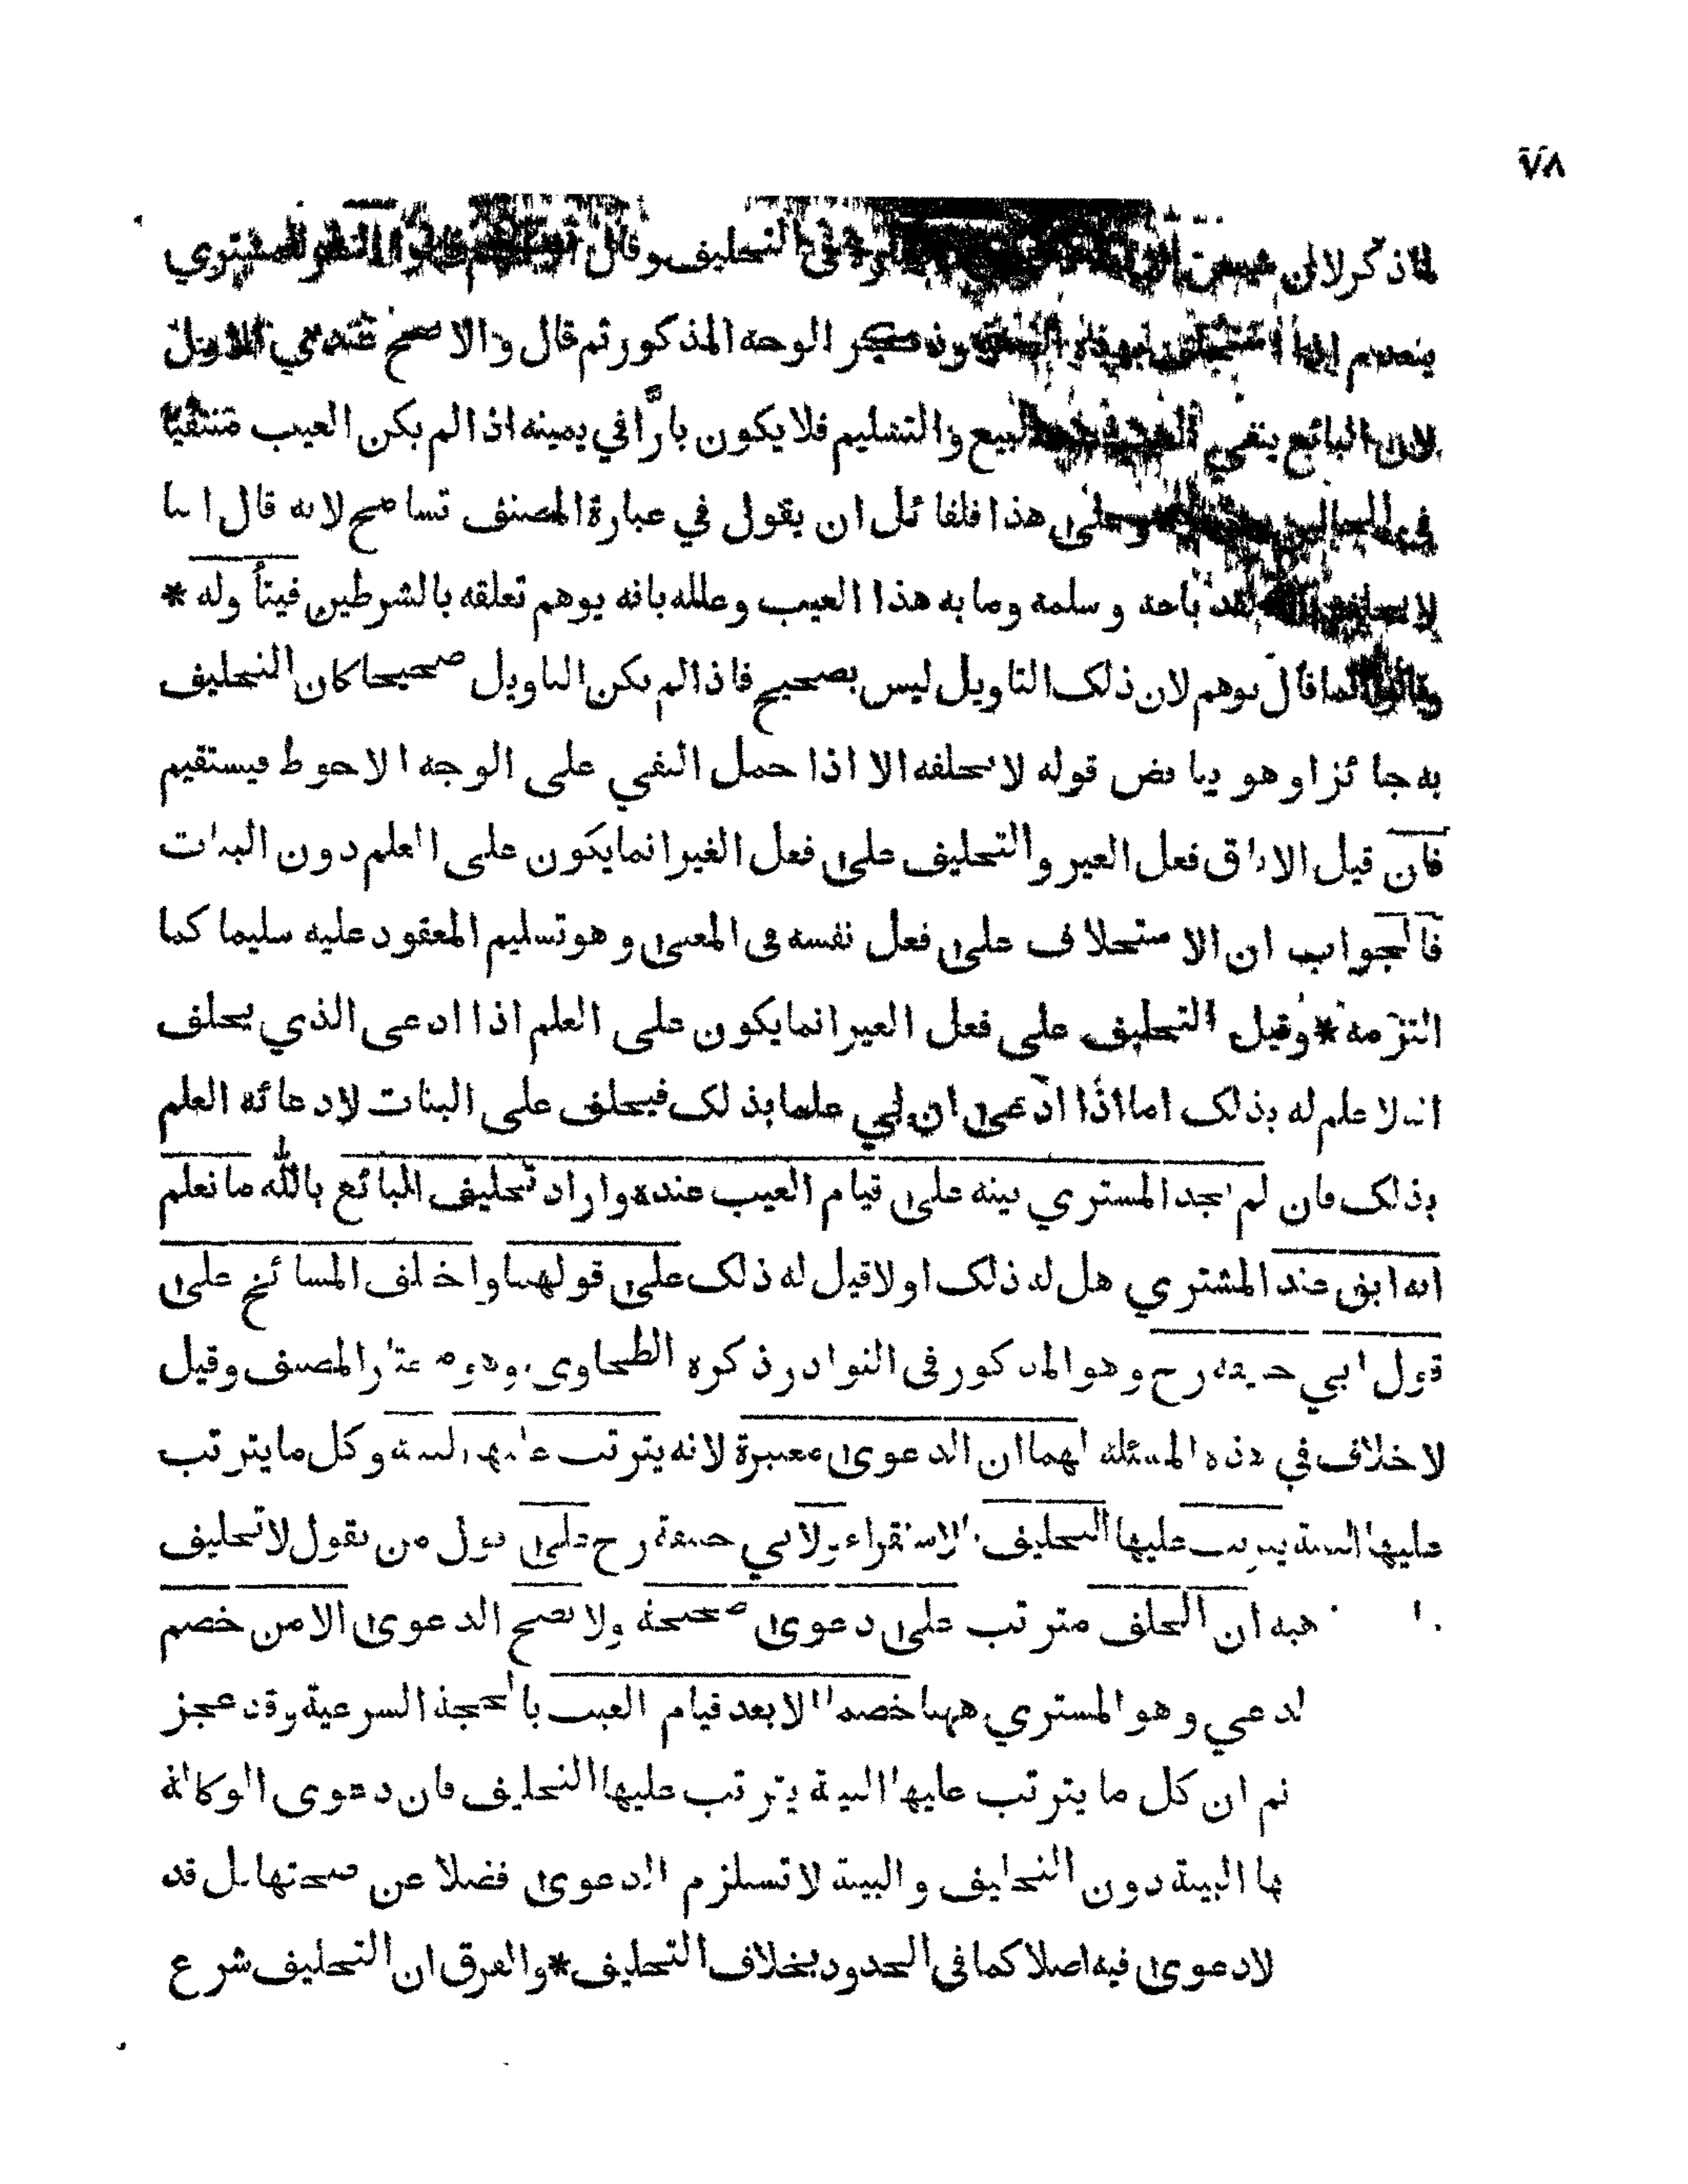 ٧٨
لما ذكر لان في التحليف وقال المشتري
ينعدم وذكر الوجه المذكور ثم قال والاصح عندي الاول
لان البائع ينفي البيع والتسليم فلا يكون بارًّا في يمينه اذا لم يكن العيب منتفيًا
في وعلى هذا فلقائل ان يقول في عبارة المصنف تسامح لانه قال اما
لا يحلفه لقد باعه وسلمه وما به هذا العيب وعلله بانه يوهم تعلقه بالشرطين فيتأوله *
وقالوا انما قال يوهم لان ذلك التاويل ليس بصحيح فاذا لم يكن التاويل صحيحا كان التحليف
به جائزا وهو يناقض قوله لا يحلفه الا اذا حمل النفي على الوجه الاحوط فيستقيم
فان قيل الاباق فعل الغير والتحليف على فعل الغير انما يكون على العلم دون البتات
فالجواب ان الاستحلاف على فعل نفسه في المعنى وهو تسليم المعقود عليه سليما كما
التزمه * وقيل التحليف على فعل الغير انما يكون على العلم اذا ادعى الذي يحلف
انه لا علم له بذلك اما اذا ادعى ان لي علما بذلك فيحلف على البتات لادعائه العلم
بذلك فان لم يجد المشتري بينة على قيام العيب عنده واراد تحليف البائع بالله ما نعلم
انه ابق عند المشتري هل له ذلك اولا قيل له ذلك على قولهما واختلف المشائخ على
قول ابي حنيفة رح وهو المذكور في النوادر ذكره الطحاوي وهو مختار المصنف وقيل
لا خلاف في هذه المسئلة لهما ان الدعوى معتبرة لانه يترتب عليها البينة وكل ما يترتب
عليها البينة يترتب عليها التحليف بالاستقراء ولابي حنيفة رح على قول من يقول لا تحليف
هبه ان الحلف مترتب على دعوى صحيحة ولا تصح الدعوى الا من خصم
لدعي وهو المشتري ههنا خصما الا بعد قيام العيب بالحجة الشرعية وقد عجز
نم ان كل ما يترتب عليها البينة يترتب عليها التحليف فان دعوى الوكالة
ها البينة دون التحليف والبينة لا تستلزم الدعوى فضلا عن صحتها بل قد
لا دعوى فيه اصلا كما في الحدود بخلاف التحليف * والفرق ان التحليف شرع